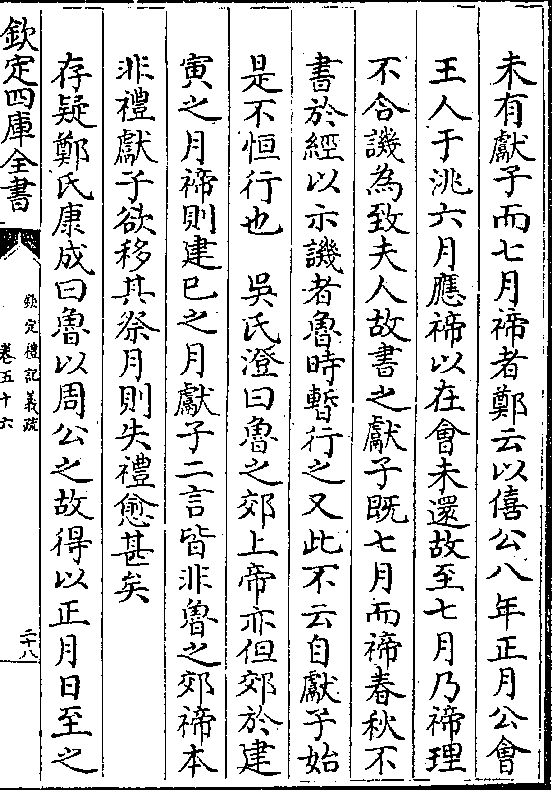 未有獻子而七月禘者鄭云以僖公八年正月公會
王人于洮六月應禘以在會未還故至七月乃禘理
不合譏為致夫人故書之獻子既七月而禘春秋不
書於經以示譏者魯時暫行之又此不云自獻子始
是不恒行也　吳氏澄曰魯之郊上帝亦但郊於建
寅之月禘則建巳之月獻子二言皆非魯之郊禘本
非禮獻子欲移其祭月則失禮愈甚矣
存疑鄭氏康成曰魯以周公之故得以正月日至之
欽定四庫全書
欽定禮記義疏
卷五十六
二十八